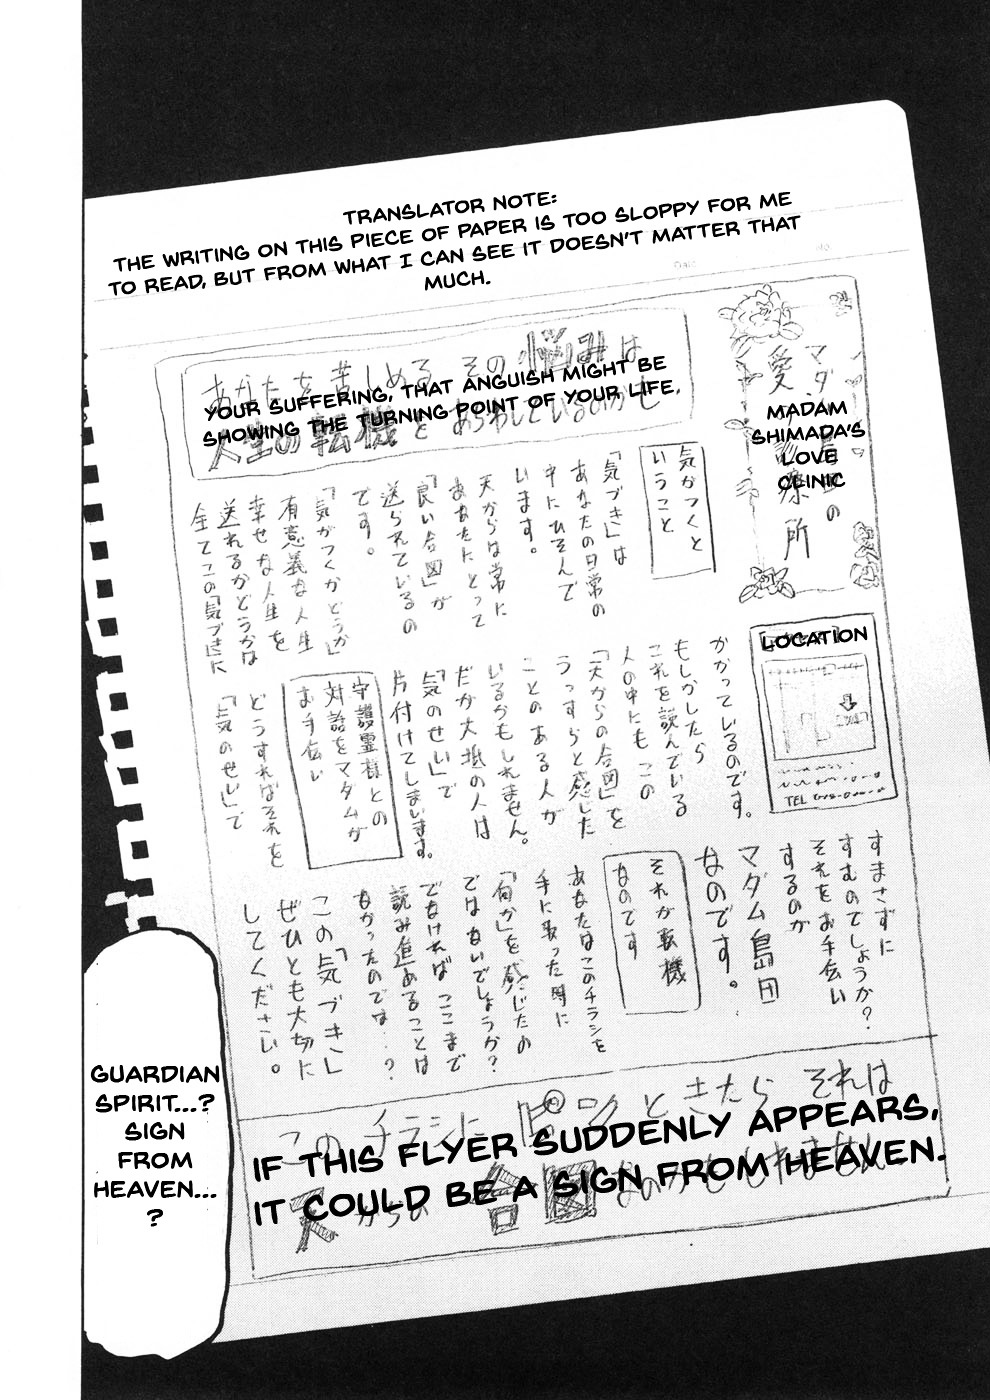 TRANSLATOR NOTE:
THE WRITING ON THIS PIECE OF PAPER IS TOO SLOPPY FOR ME
TO READ, BUT FROM WHAT I CAN SEE IT DOESN'T MATTER THAT
MUCH.
あなたを苦しめる その悩みは
YOUR SUFFERING, THAT ANGUISH MIGHT BE
SHOWING THE TURNING POINT OF YOUR LIFE.
人生の転機を あらわしているのかも
MADAM
SHIMADA'S
LOVE
CLINIC
気がつくと
いうこと
「気づき」は
あなたの日常の
中にひそんで
います。
天からは常に
あなたにとって
「良い合図」が
送られているの
です。
「気がつくかどうか」
有意義な人生
幸せな人生を
送れるかどうかは
全てこの「気づき」に
LOCATION
TEL
かかっているのです。
もしかしたら
これを読んでいる
人の中にも この
「天からの合図」を
うっすらと感じた
ことのある人が
いるかもしれません。
だが大抵の人は
「気のせい」で
片付けてしまいます。
守護霊様との
対話をマダムが
お手伝い
どうすればそれを
「気のせい」で
すまさずに
すむのでしょうか?
それをお手伝い
するのが
マダム島田
なのです。
それが転機
なのです
あなたはこのチラシを
手に取った時に
「何か」を感じたの
ではないでしょうか?
でなければ ここまで
読み進めることは
なかったのでは…?
この「気づき」
ぜひとも大切に
してください。
このチラシに ピンときたら それは
IF THIS FLYER SUDDENLY APPEARS,
IT COULD BE A SIGN FROM HEAVEN.
天からの 合図なのかもしれません
GUARDIAN
SPIRIT...?
SIGN
FROM
HEAVEN...
?